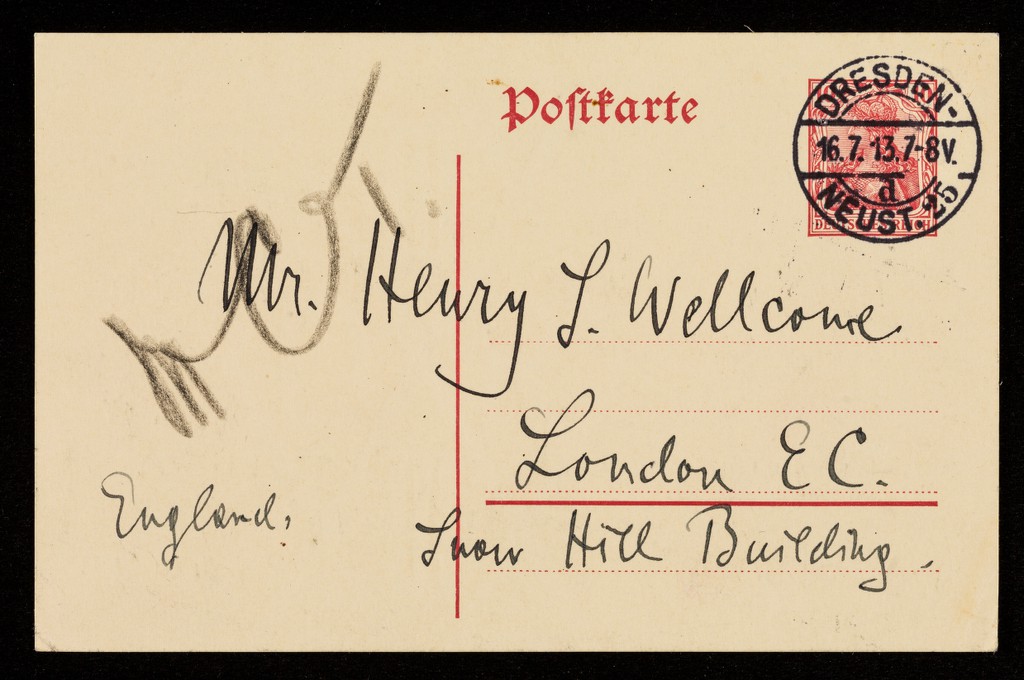 Postkarte
DRESDEN-
16.7.13.7-8V.
d
NEUST. 25
DEUTSCHES REICH
Mr. Henry S. Wellcome
London E C.
England.
Snow Hill Building.